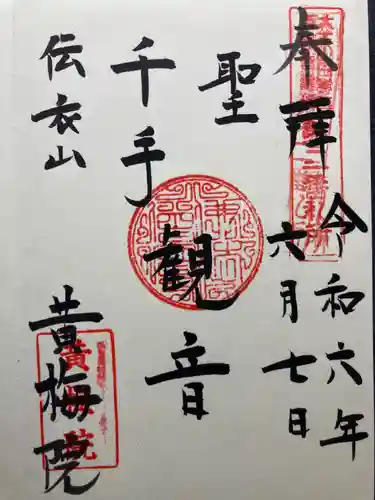 奉拝
令和六年
六月七日
聖
千手
観音
伝衣山
黄梅院